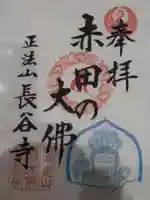 奉拝
赤田の
大佛
正法山
長谷寺